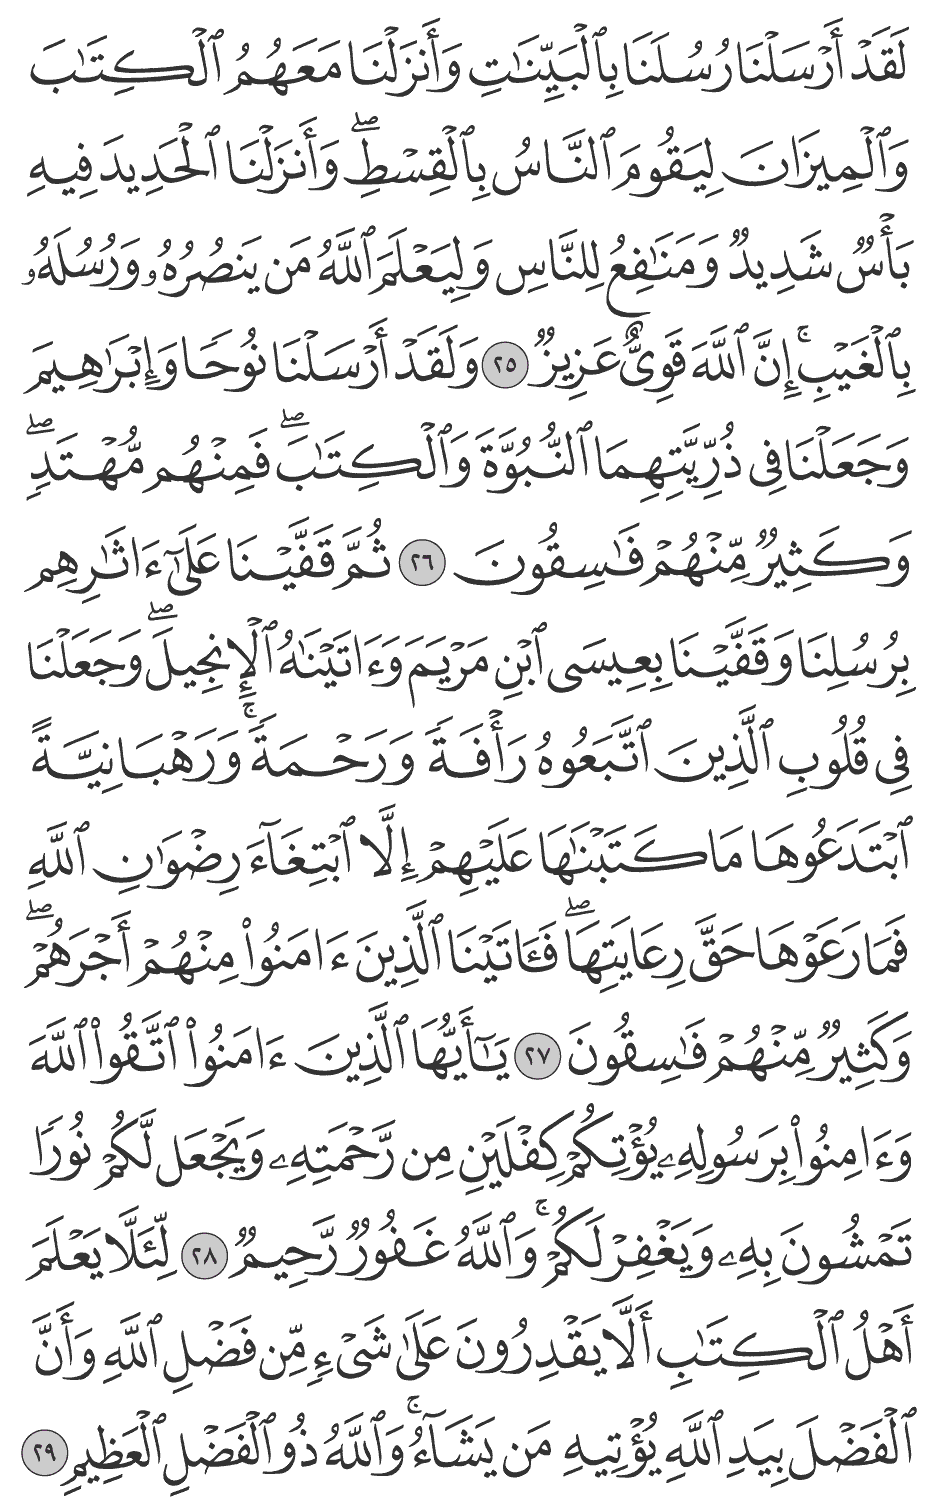 لَقَدۡ أَرۡسَلۡنَا رُسُلَنَا بِٱلۡبَيِّنَٰتِ وَأَنزَلۡنَا مَعَهُمُ ٱلۡكِتَٰبَ
وَٱلۡمِيزَانَ لِيَقُومَ ٱلنَّاسُ بِٱلۡقِسۡطِۖ وَأَنزَلۡنَا ٱلۡحَدِيدَ فِيهِ
بَأۡسٞ شَدِيدٞ وَمَنَٰفِعُ لِلنَّاسِ وَلِيَعۡلَمَ ٱللَّهُ مَن يَنصُرُهُۥ وَرُسُلَهُۥ
بِٱلۡغَيۡبِۚ إِنَّ ٱللَّهَ قَوِيٌّ عَزِيزٞ ٢٥ وَلَقَدۡ أَرۡسَلۡنَا نُوحٗا وَإِبۡرَٰهِيمَ
وَجَعَلۡنَا فِي ذُرِّيَّتِهِمَا ٱلنُّبُوَّةَ وَٱلۡكِتَٰبَۖ فَمِنۡهُم مُّهۡتَدٖۖ
وَكَثِيرٞ مِّنۡهُمۡ فَٰسِقُونَ ٢٦ ثُمَّ قَفَّيۡنَا عَلَىٰٓ ءَاثَٰرِهِم
بِرُسُلِنَا وَقَفَّيۡنَا بِعِيسَى ٱبۡنِ مَرۡيَمَ وَءَاتَيۡنَٰهُ ٱلۡإِنجِيلَۖ وَجَعَلۡنَا
فِي قُلُوبِ ٱلَّذِينَ ٱتَّبَعُوهُ رَأۡفَةٗ وَرَحۡمَةٗۚ وَرَهۡبَانِيَّةً
ٱبۡتَدَعُوهَا مَا كَتَبۡنَٰهَا عَلَيۡهِمۡ إِلَّا ٱبۡتِغَآءَ رِضۡوَٰنِ ٱللَّهِ
فَمَا رَعَوۡهَا حَقَّ رِعَايَتِهَاۖ فَـَٔاتَيۡنَا ٱلَّذِينَ ءَامَنُواْ مِنۡهُمۡ أَجۡرَهُمۡۖ
وَكَثِيرٞ مِّنۡهُمۡ فَٰسِقُونَ ٢٧ يَٰٓأَيُّهَا ٱلَّذِينَ ءَامَنُواْ ٱتَّقُواْ ٱللَّهَ
وَءَامِنُواْ بِرَسُولِهِۦ يُؤۡتِكُمۡ كِفۡلَيۡنِ مِن رَّحۡمَتِهِۦ وَيَجۡعَل لَّكُمۡ نُورٗا
تَمۡشُونَ بِهِۦ وَيَغۡفِرۡ لَكُمۡۚ وَٱللَّهُ غَفُورٞ رَّحِيمٞ ٢٨ لِّئَلَّا يَعۡلَمَ
أَهۡلُ ٱلۡكِتَٰبِ أَلَّا يَقۡدِرُونَ عَلَىٰ شَيۡءٖ مِّن فَضۡلِ ٱللَّهِ وَأَنَّ
ٱلۡفَضۡلَ بِيَدِ ٱللَّهِ يُؤۡتِيهِ مَن يَشَآءُۚ وَٱللَّهُ ذُو ٱلۡفَضۡلِ ٱلۡعَظِيمِ ٢٩